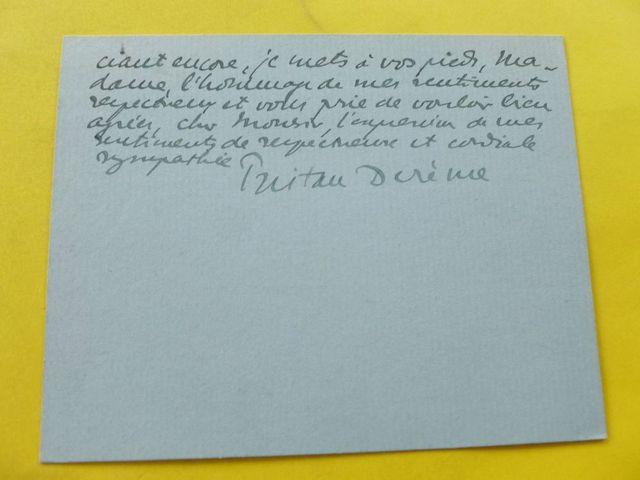 ciant encore, je mets à vos pieds, Ma-
dame, l'hommage de mes sentiments
respectueux et vous prie de vouloir bien
agréer, cher Monsieur, l'expression de mes
sentiments de respectueuse et cordiale
sympathie
Tristan Derème